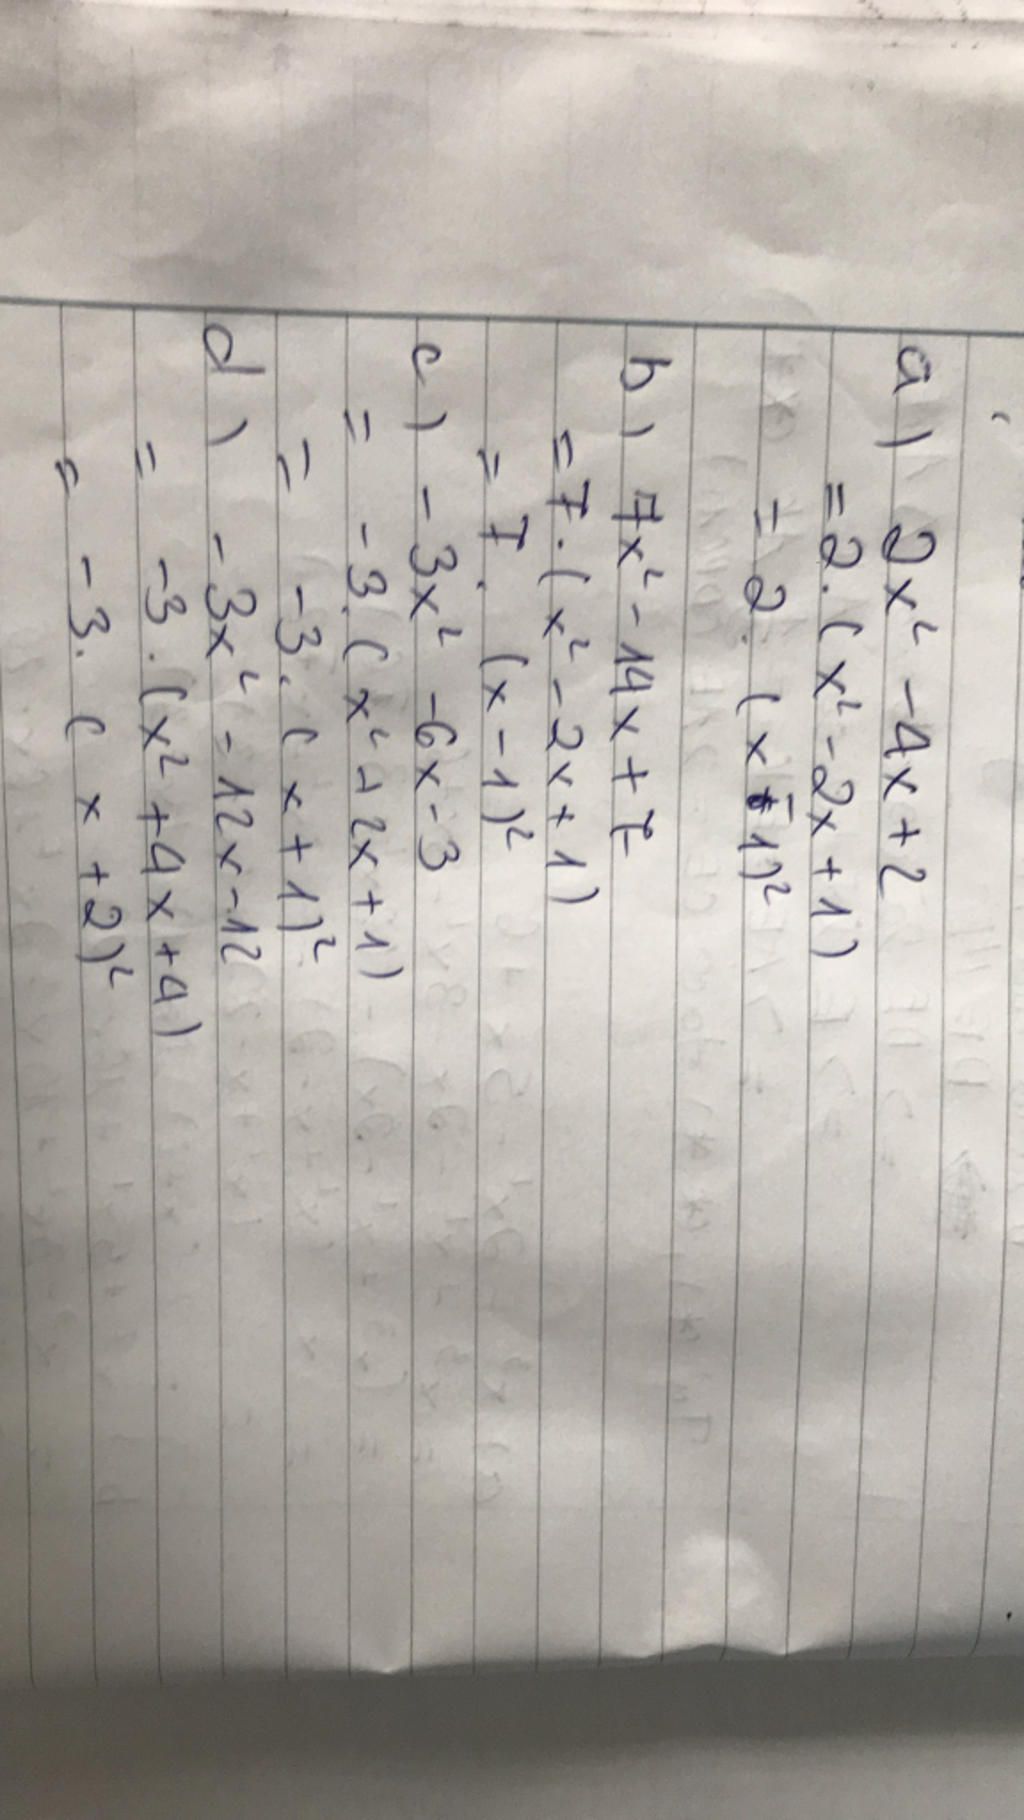 a) 2x² - 4x + 2
= 2 . (x² - 2x + 1)
= 2 . (x - 1)²
b) 7x² - 14x + 7
= 7 . (x² - 2x + 1)
= 7 . (x - 1)²
c) - 3x² - 6x - 3
= -3 . (x² + 2x + 1)
= -3 . (x + 1)²
d) - 3x² - 12x - 12
= -3 . (x² + 4x + 4)
= -3 . (x + 2)²